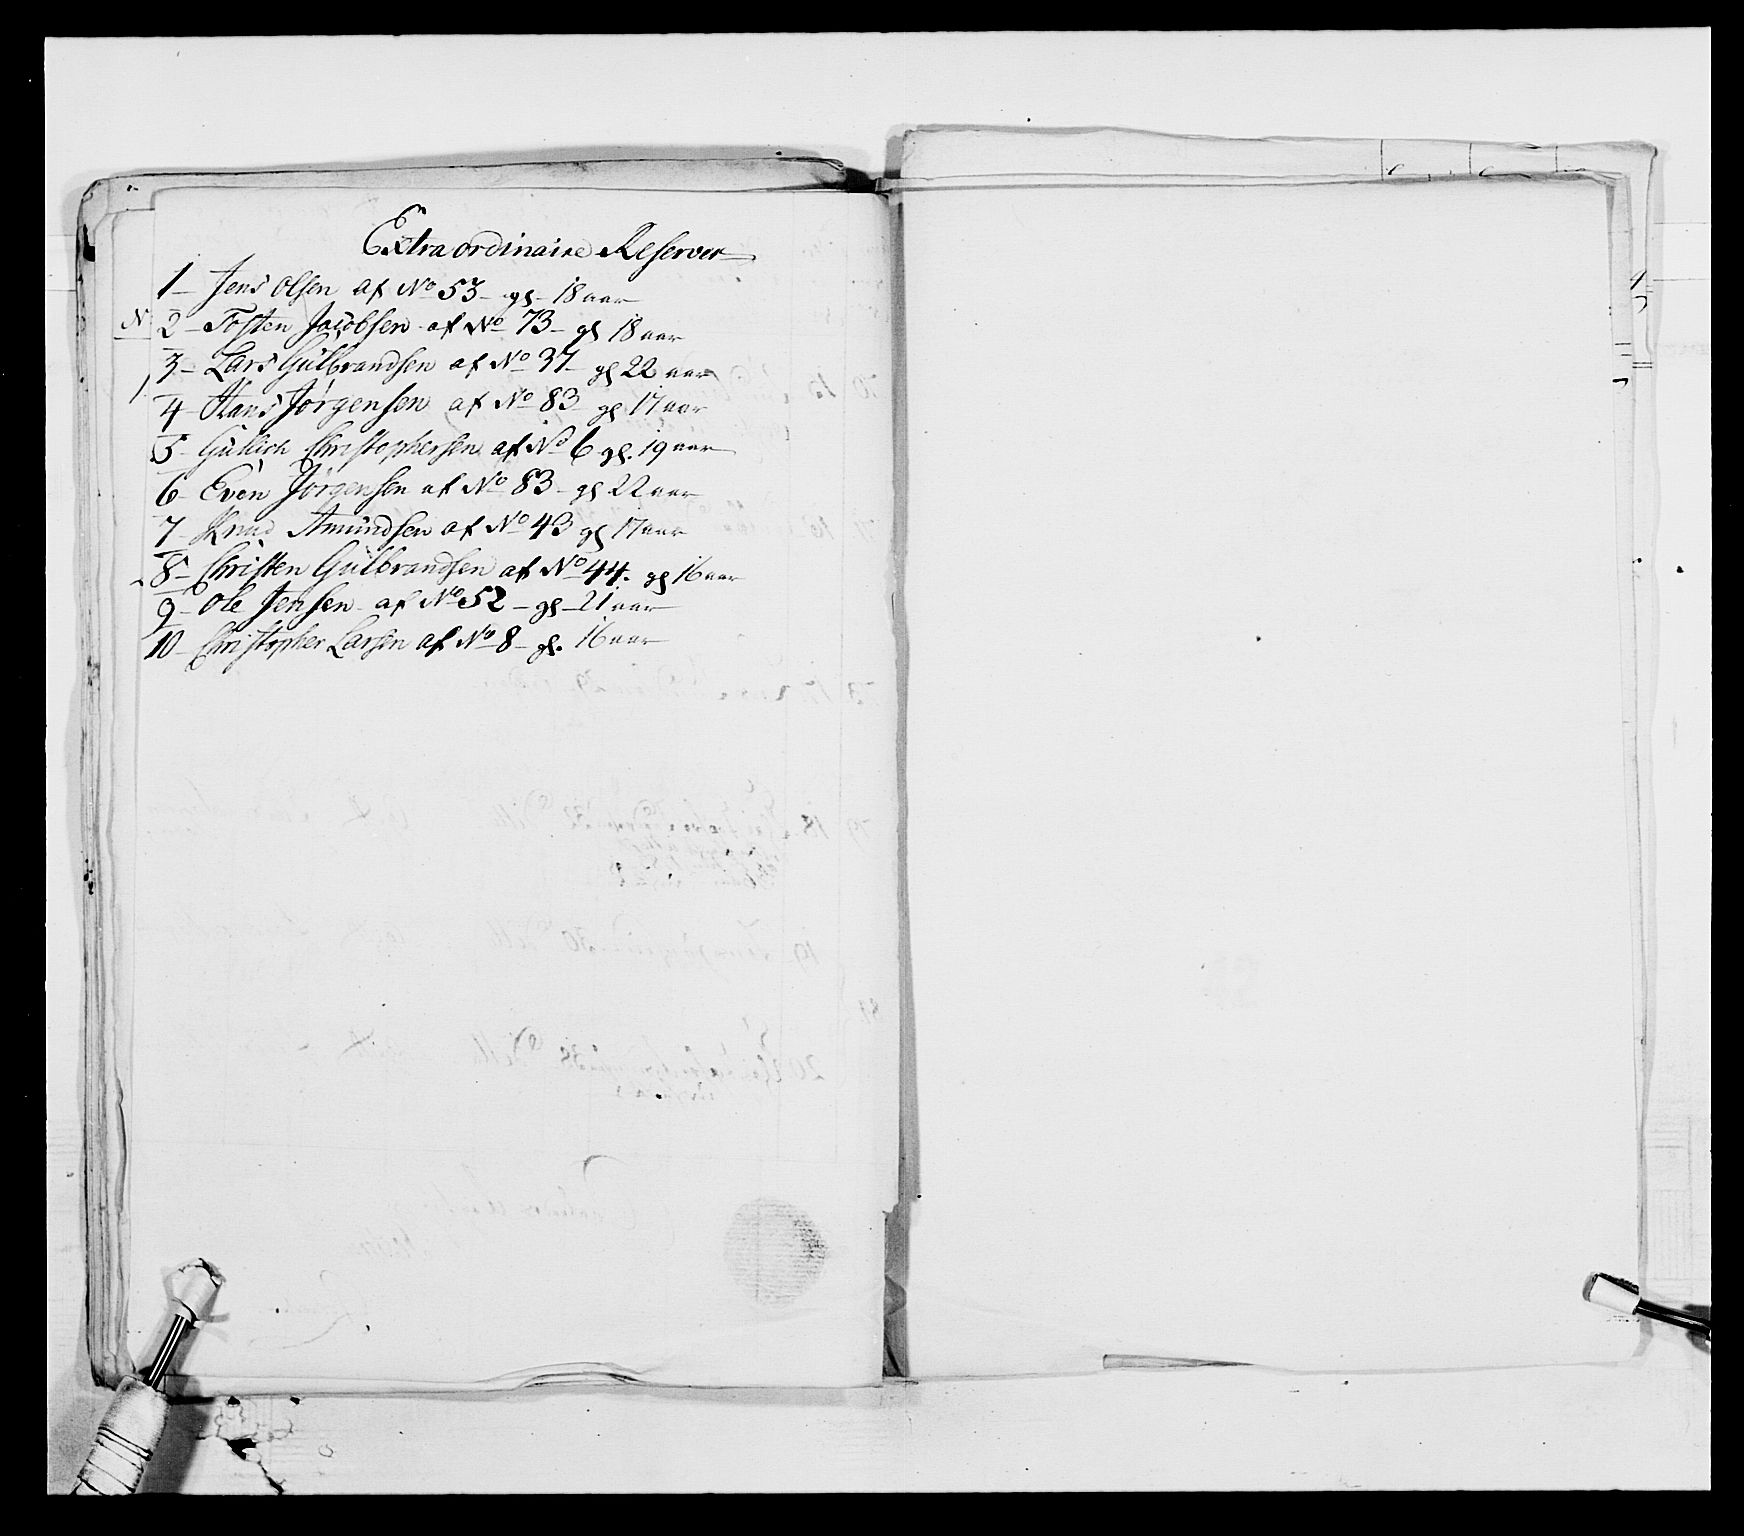 Extra ordinaire Reserver
1 - Jens Olsen af No 53 - gl - 18 aar
N 2 - Tosten Jacobsen af No 73 - gl 18 aar
3 - Lars Gülbrandsen af No 37 - gl 22 aar
4 - Hans Jörgensen af No 83 - gl 17 aar
5 - Güllich Christophersen af No 6 gl. 19 aar
6 - Even Jörgensen af No 83 - gl 22 aar
7 - Knud Amündsen af No 43 gl 17 aar
8 - Christen Gülbrandsen af No 44. gl 16 aar
9 - Ole Jensen - af No 52 - gl - 21 aar
10 - Christopher Larsen af No 8 - gl. 16 aar